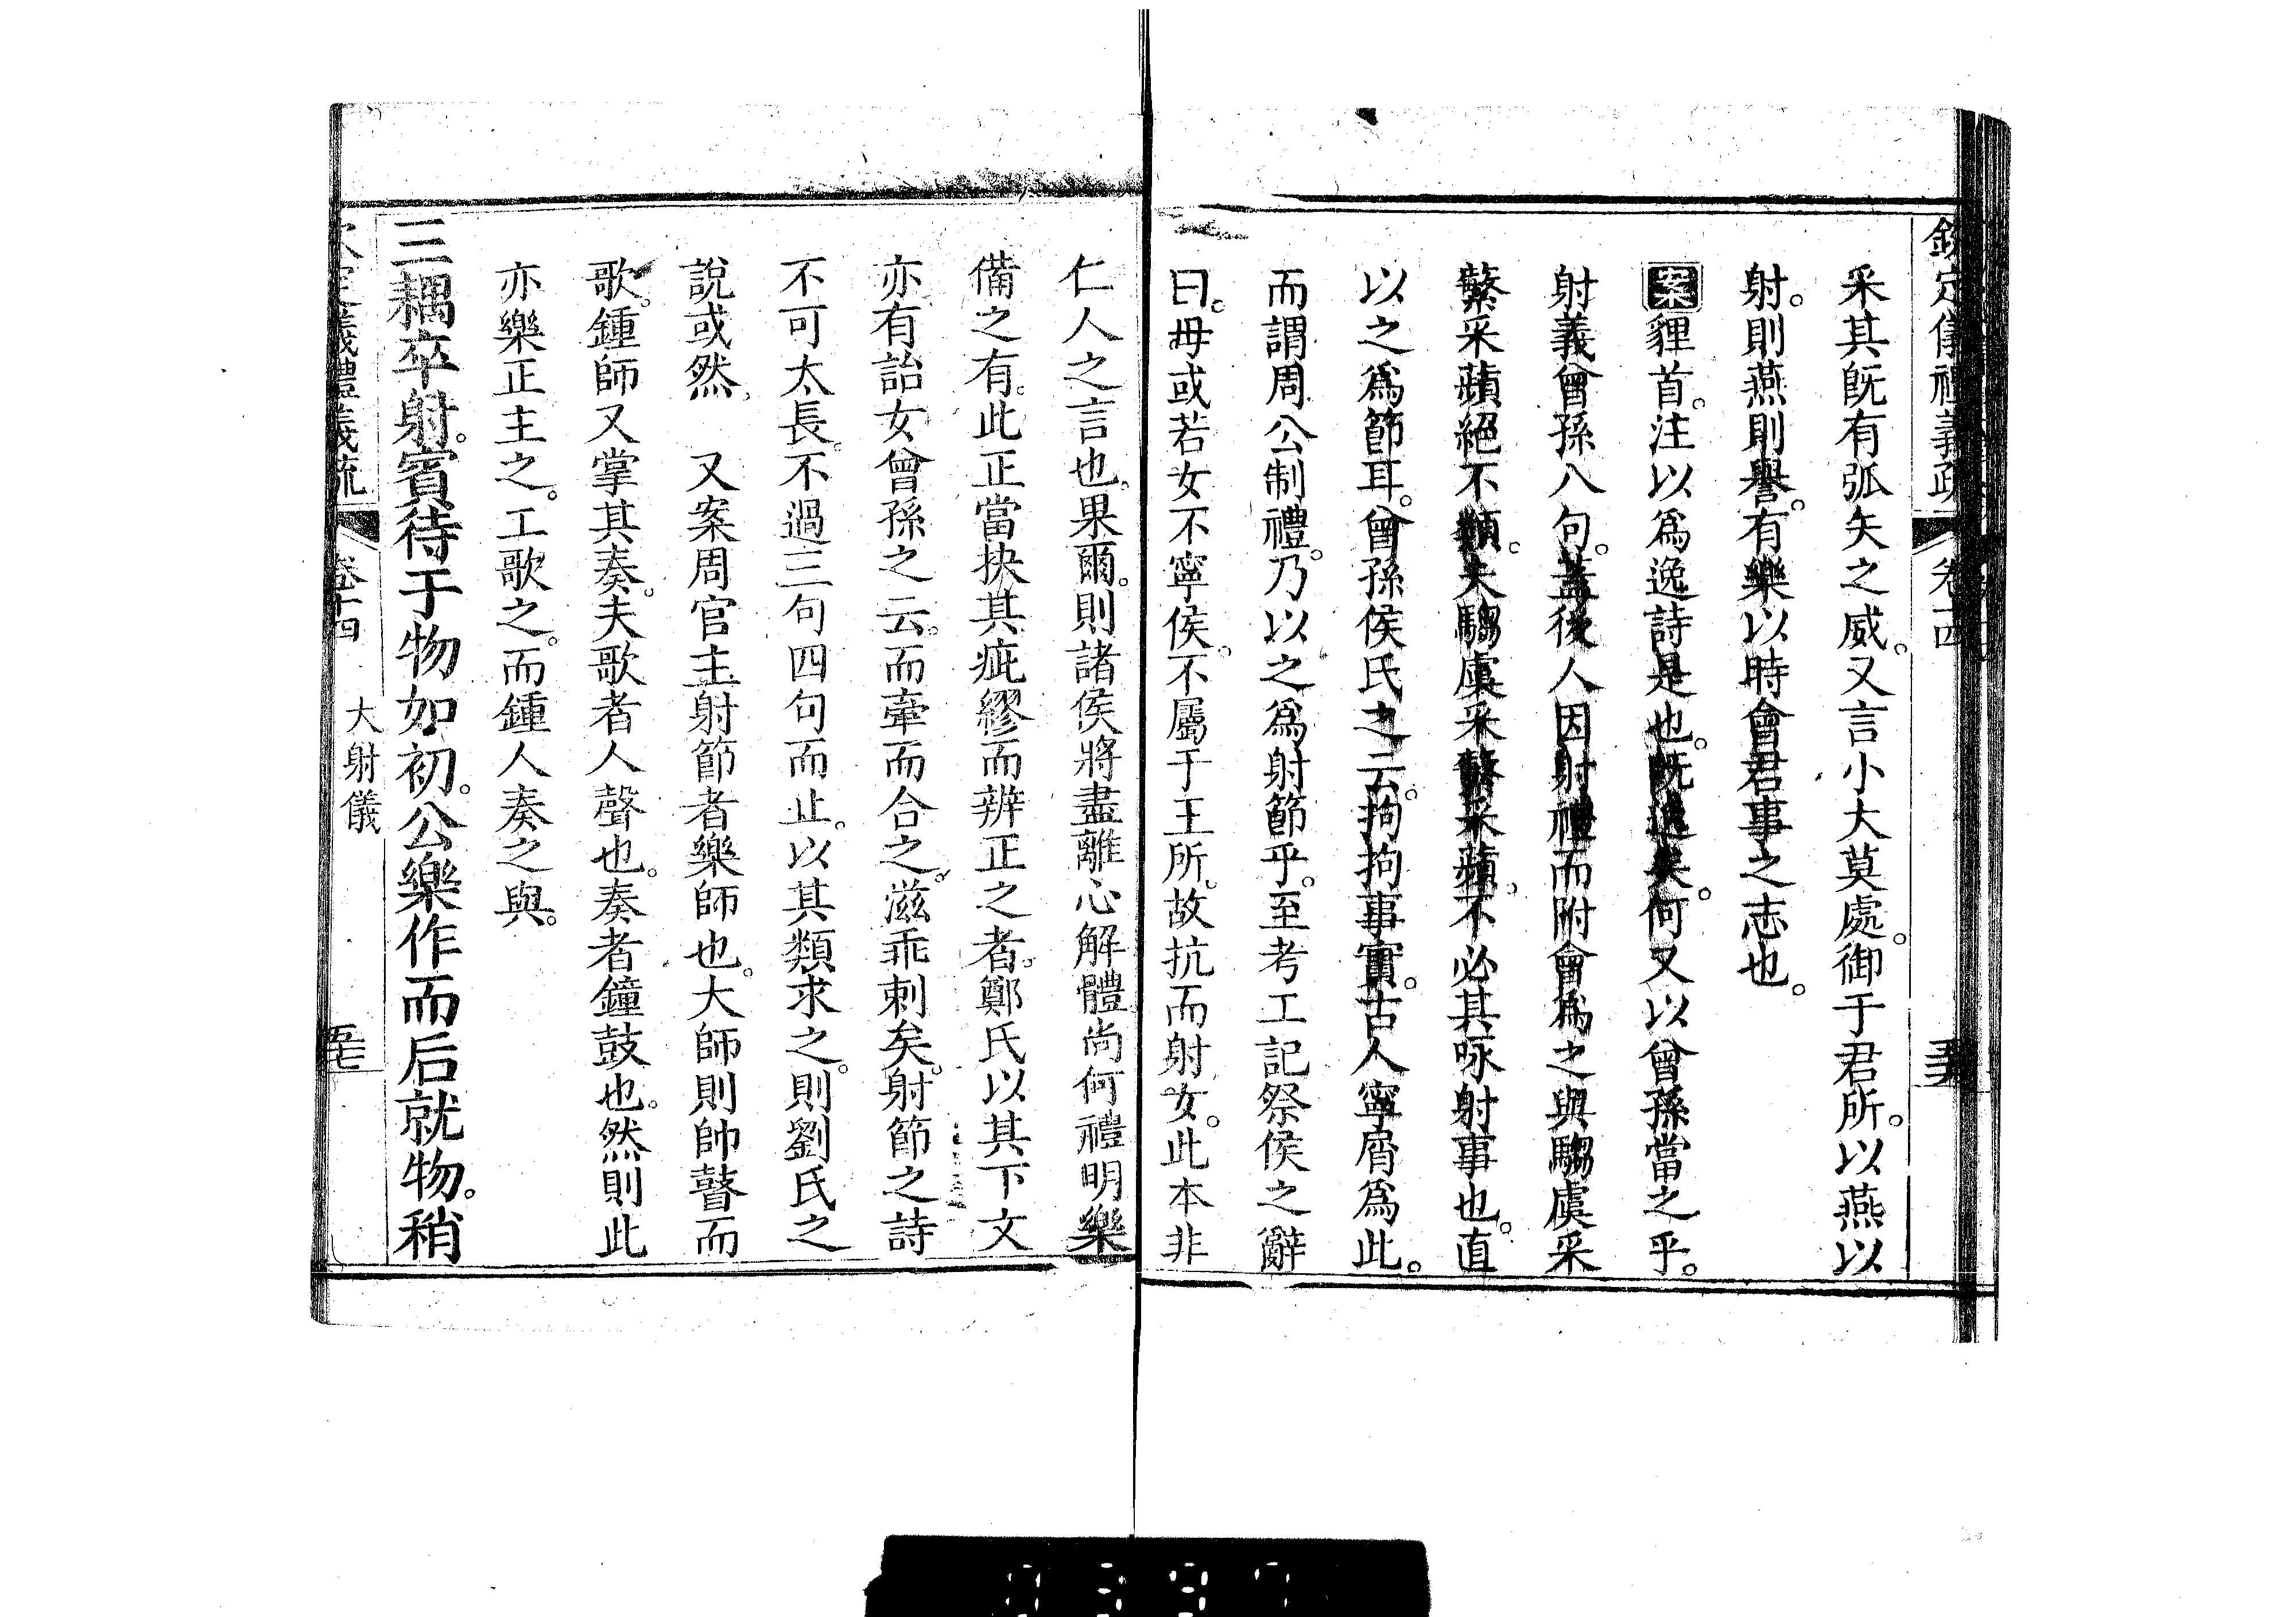 欽定儀禮義疏 卷十四
采其既有弧矢之威。又言小大莫處。御于君所。以燕以
射。則燕則譽。有樂以時會君事之志也。
案貍首。注以為逸詩是也。既逸矣。何又以曾孫當之乎。
射義曾孫八句。蓋後人因射禮而附會為之與騶虞采
蘩采蘋絕不類。夫騶虞采蘩采蘋。不必其咏射事也。直
以之為節耳。曾孫侯氏之云。拘拘事實。古人寧屑為此。
而謂周公制禮。乃以之為射節乎。至考工記祭侯之辭
曰。毋或若女不寧侯。不屬于王所。故抗而射女。此本非
仁人之言也。果爾。則諸侯將盡離心解體尚何禮明樂
備之有。此正當抉其疵繆而辨正之者。鄭氏以其下文
亦有詒女曾孫之云。而牽而合之。滋乖剌矣。射節之詩
不可太長。不過三句四句而止。以其類求之。則劉氏之
說或然。 又案周官主射節者樂師也。大師則帥瞽而
歌。鍾師又掌其奏。夫歌者人聲也。奏者鐘鼓也。然則此
亦樂正主之。工歌之。而鍾人奏之與。
三耦卒射。賓待于物如初。公樂作而后就物。稍
欽定儀禮義疏 卷十四 大射儀 五七